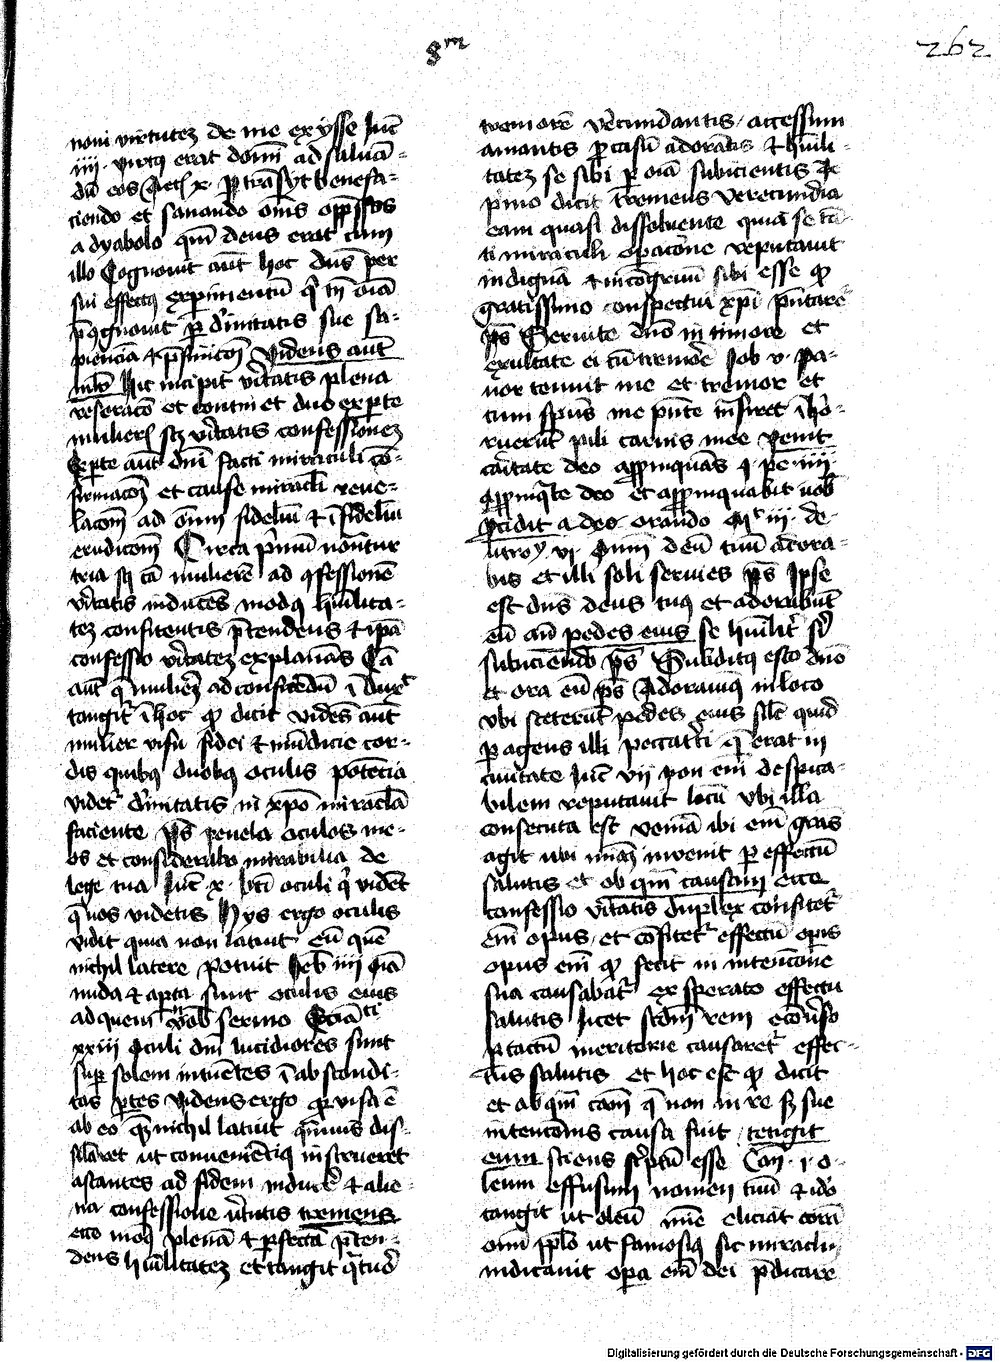 8m
262
noui virtutez de me exysse luc
iiii. virtus erat domini ad saluan-
du eos Act x. ptransyt benefa-
ciendo et sanando ois oppssos
a dyabolo qm deus erat cum
illo Cognouit aut hoc dns per
sui effectus experimentu q tn oia
pcognouit p diuitatis sue sa-
pienciam Videns aut
mlr hic incipit vitatis plena
reseraco et continet duo ex pte
mulieris sz vitatis confessionez
Ex pte aut dni facti miraculi co-
firmacoz et cause miracli reue-
lacom ad oium fideliu & ifideliu
erudicom Circa pmu nontur
tria sz ca muliere ad cfessione
vitatis inducens modus humilita-
tez confitentis ptendens & ipa
confessio vitatez explanas Ca
aut q muliez ad confitedu iduxt
tangit i hoc q dicit videns aut
mulier visu fidei & mundicie cor-
dis quibus duobus oculis potecia
videt diuinitatis in xpo miracla
faciente ps reuela oculos me-
os et considerabo mirabilia de
lege tua luc x. bti oculi q vident
q vos videtis Hys ergo oculis
vidit quia non latuit eu que
nichil latere potuit heb iiii oia
nuda & apta sunt oculis eius
ad quem nob sermo Ecciaci
xxiii oculi dni lucidiores sunt
sup solem intuetes i abscondi-
tas ptes Videns ergo q visa e
ab eo qz nichil latuit quis dis-
simulet ut conuenietius instrueret
astantes ad fidem induce & alie-
na confessione vitatis tremens
ecce modus plena & pfecta pten-
dens humilitatez et tangit
tremore verecundantis, accessum
amantis pcasu adorantis & humili-
tatez se sibi p oia subicientis De
pmo dicit tremens verecundia
eam quasi dissoluente quia se ta-
ti miraculi opacone reputauit
indigna & incogruu sibi esse q
gratissimo conspectui xpi pntare
ps Seruite dno in timore et
exultate ei cu tremore Job v. pa-
uor tenuit me et tremor et
cum spus me pnte transiret iho-
ruerut pili carnis mee Venit
caritate deo appinquas
appinqte deo et appinquabit uob
pcidit a deo orando Mt iii. de-
utroy vi. dnm deu tuu adora-
bis et illi soli seruies ps Ipse
est dns deus tuus et adorabunt
eu an pedes eius se humilit
subiciendo ps Subditus esto dno
et ora eu ps Adorauimus in loco
vbi steterut pedes eius sile quid
pagens illi peccatrici q erat in
ciuitate luc vii non em despica-
bilem reputauit locu vbi illa
consecuta est venia ibi em gras
agit ubi inuenit p effectu
salutis et ob qm causam ecce
confessio vitatis duplex confitet
em opus, et cofitet effectu opis
opus em q fecit in intencone
sua causabat ex sperato effectu
salutis licet scdm rem econuerso
p tactu meritorie causaret effec-
tus salutis et hoc est q dicit
et ob qm cam q non in re sz sue
intenconis causa fuit tetigit
eum sciens scptu esse Can. 1 o-
leum effusum nomen tuu & ido
tangit ut oleu eliciat cora
omi pplo ut famosius sic miraclu
indicauit opa em dei pdicare
Digitalisierung gefördert durch die Deutsche Forschungsgemeinschaft - DFG